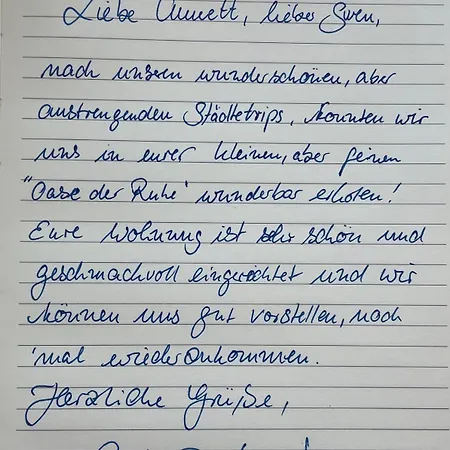 Liebe Annett, lieber Sven,
nach unseren wunderschönen, aber
anstrengenden Städtetrips, konnten wir
uns in eurer kleinen, aber feinen
"Oase der Ruhe" wunderbar erholen!
Eure Wohnung ist sehr schön und
geschmackvoll eingerichtet und wir
können uns gut vorstellen, noch
'mal wiederzukommen.
Herzliche Grüße,